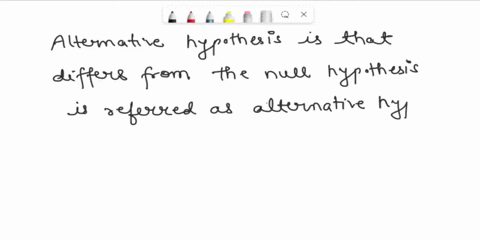 Alternative hypothesis is that
differs from the null hypothesis
is referred as alternative hyp